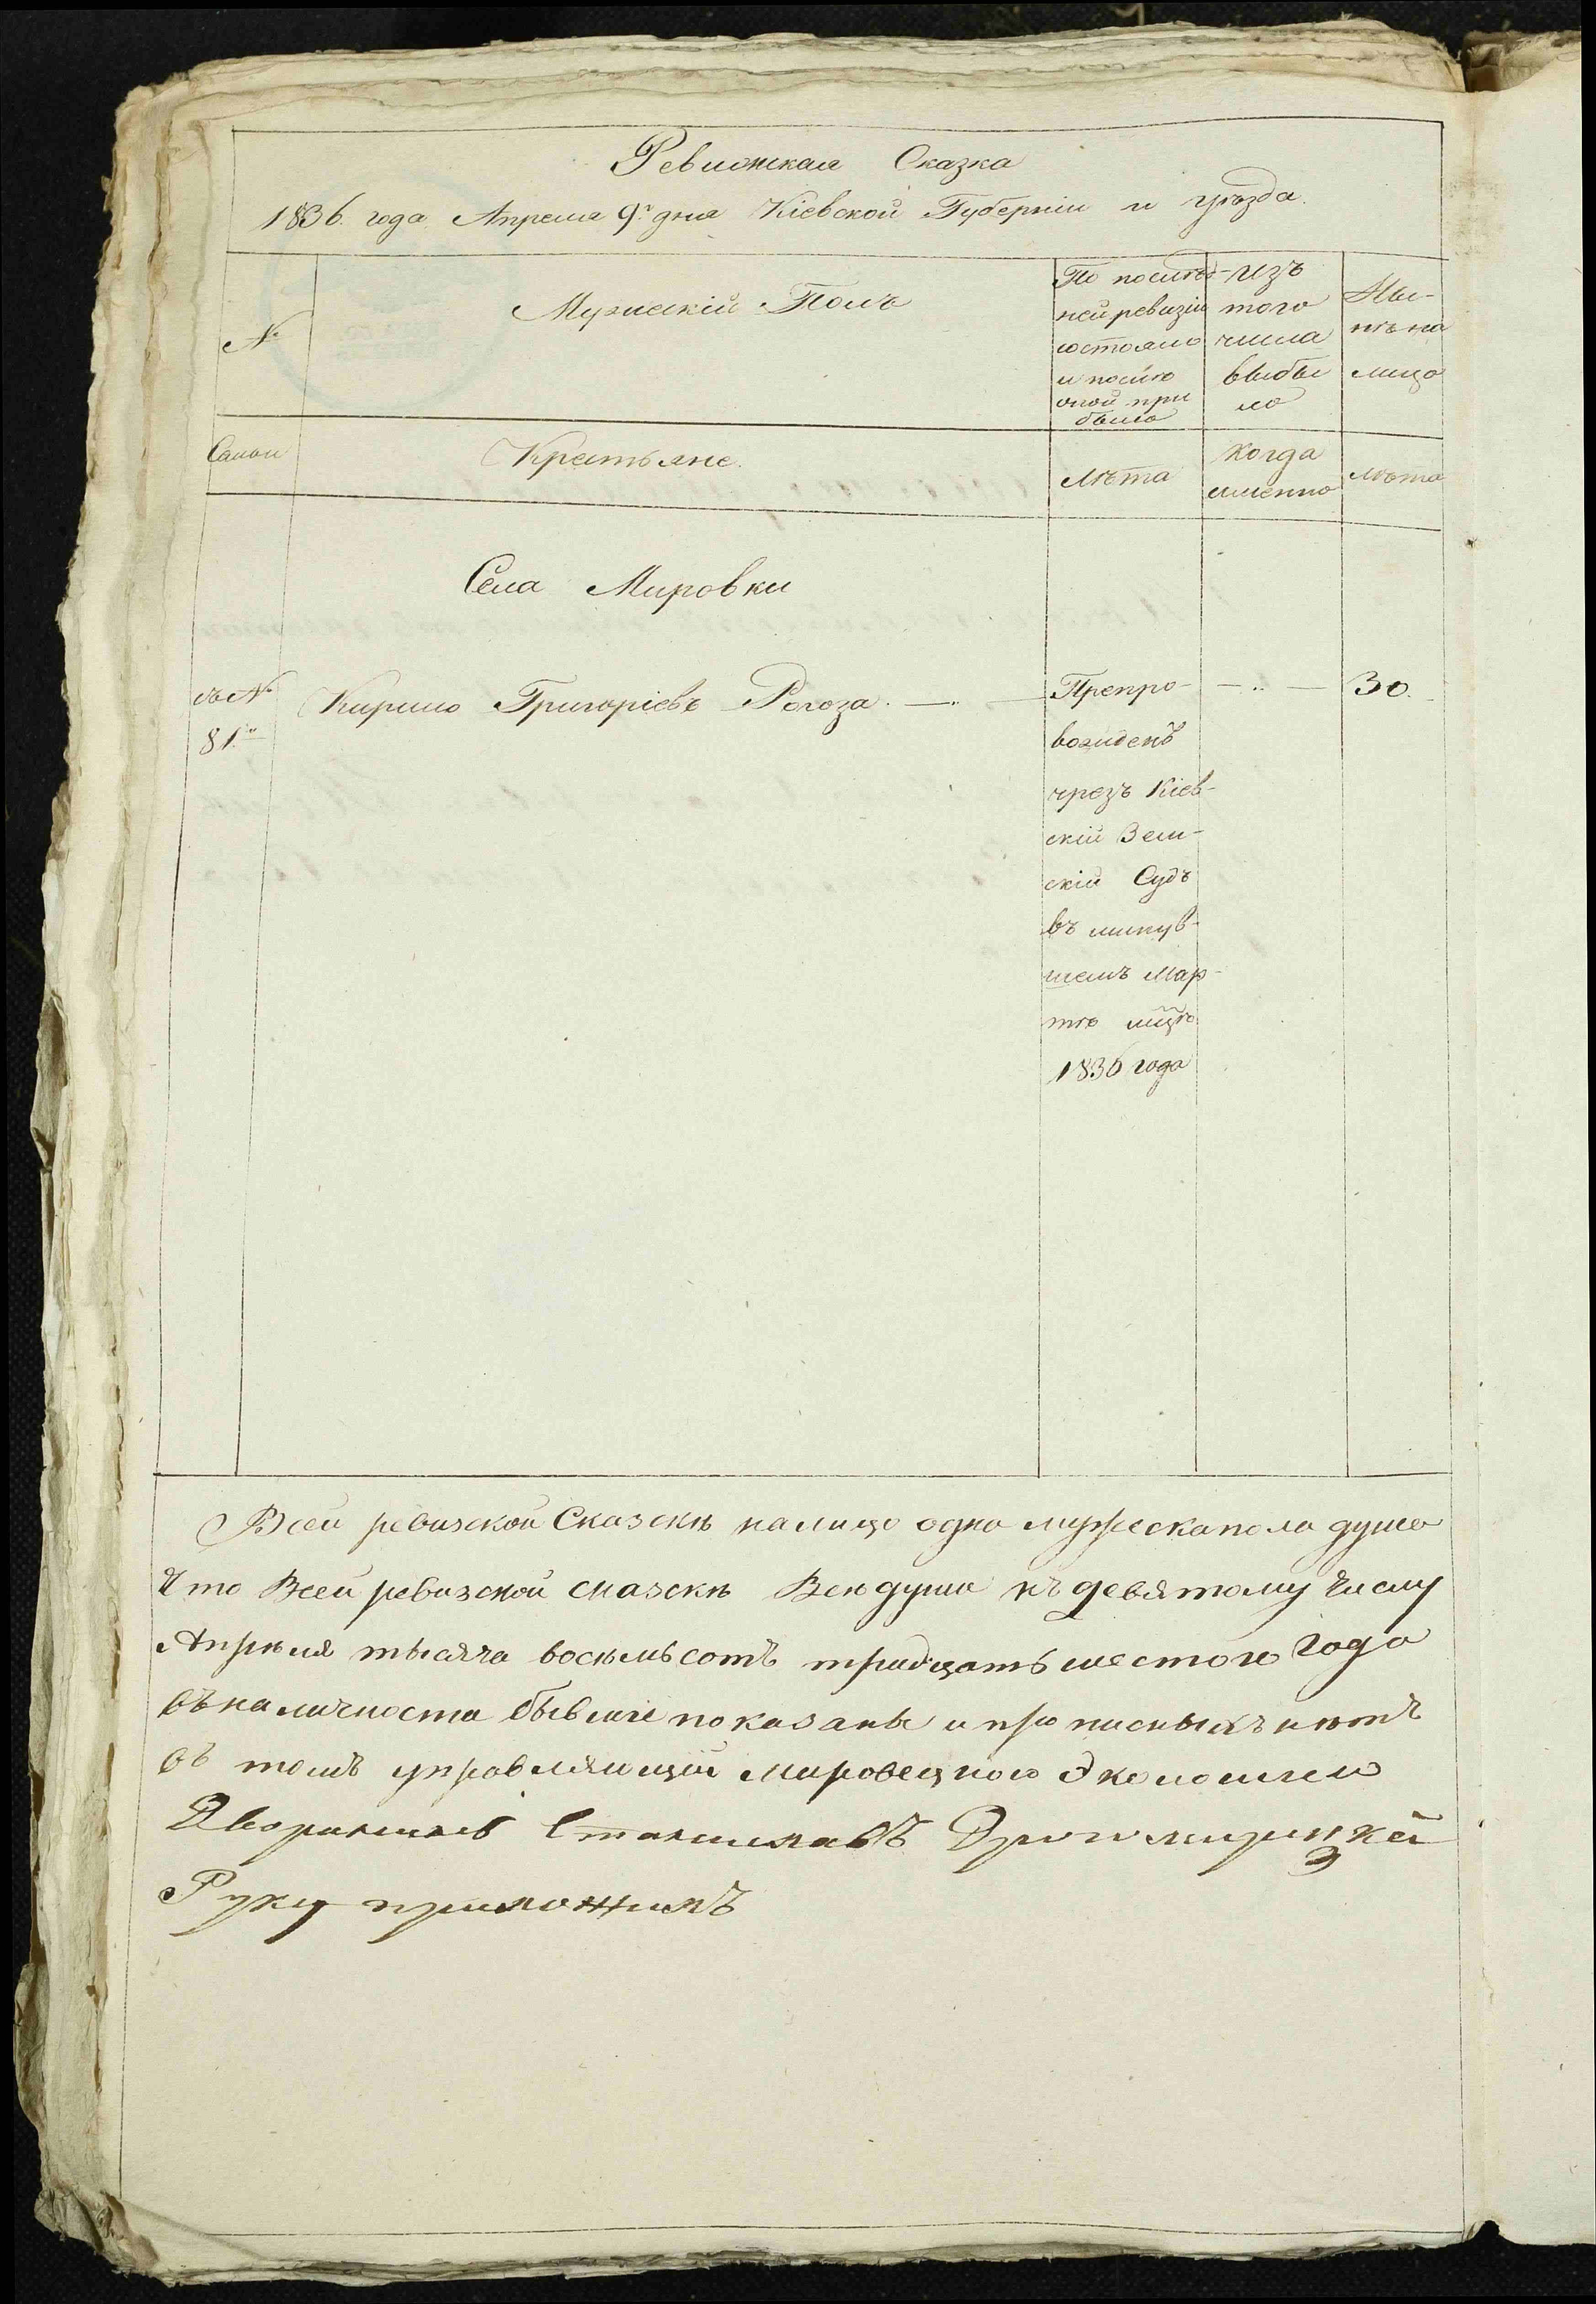 Ревижская Сказка
1836. года Апреля 9го дня Кіевской Губерніи и уѣзда.
№
Мужескій Полъ
По послѣд-
ней ревизіи
состояло
и послѣ
оной при
было
изъ
того
числа
выбы
ло
Ны-
нѣ на
лицо
Семьи
Крестьяне.
лѣта
Когда
именно
лѣта
Села Мировки
въ №
81й
Кирило Григоріевъ Рогоза.
Препро-
вожденъ
чрезъ Кіев-
скій Зем-
скій Судъ
въ минув-
шемъ Мар-
тѣ мцѣ
1836 года
30.
Всей ревизской Сказскѣ налицо одна мужеска пола душа
Что Всей ревизской сказскѣ Все души къ девятому числу
Апрѣля тысяча восемьсотъ тридцать шестого Года
въ наличности бывшіе показаны и прописныхъ нѣтъ
въ томъ управляющій Мировецкого Экономіею
Дворянинъ Станиславъ
Руку приложилъ